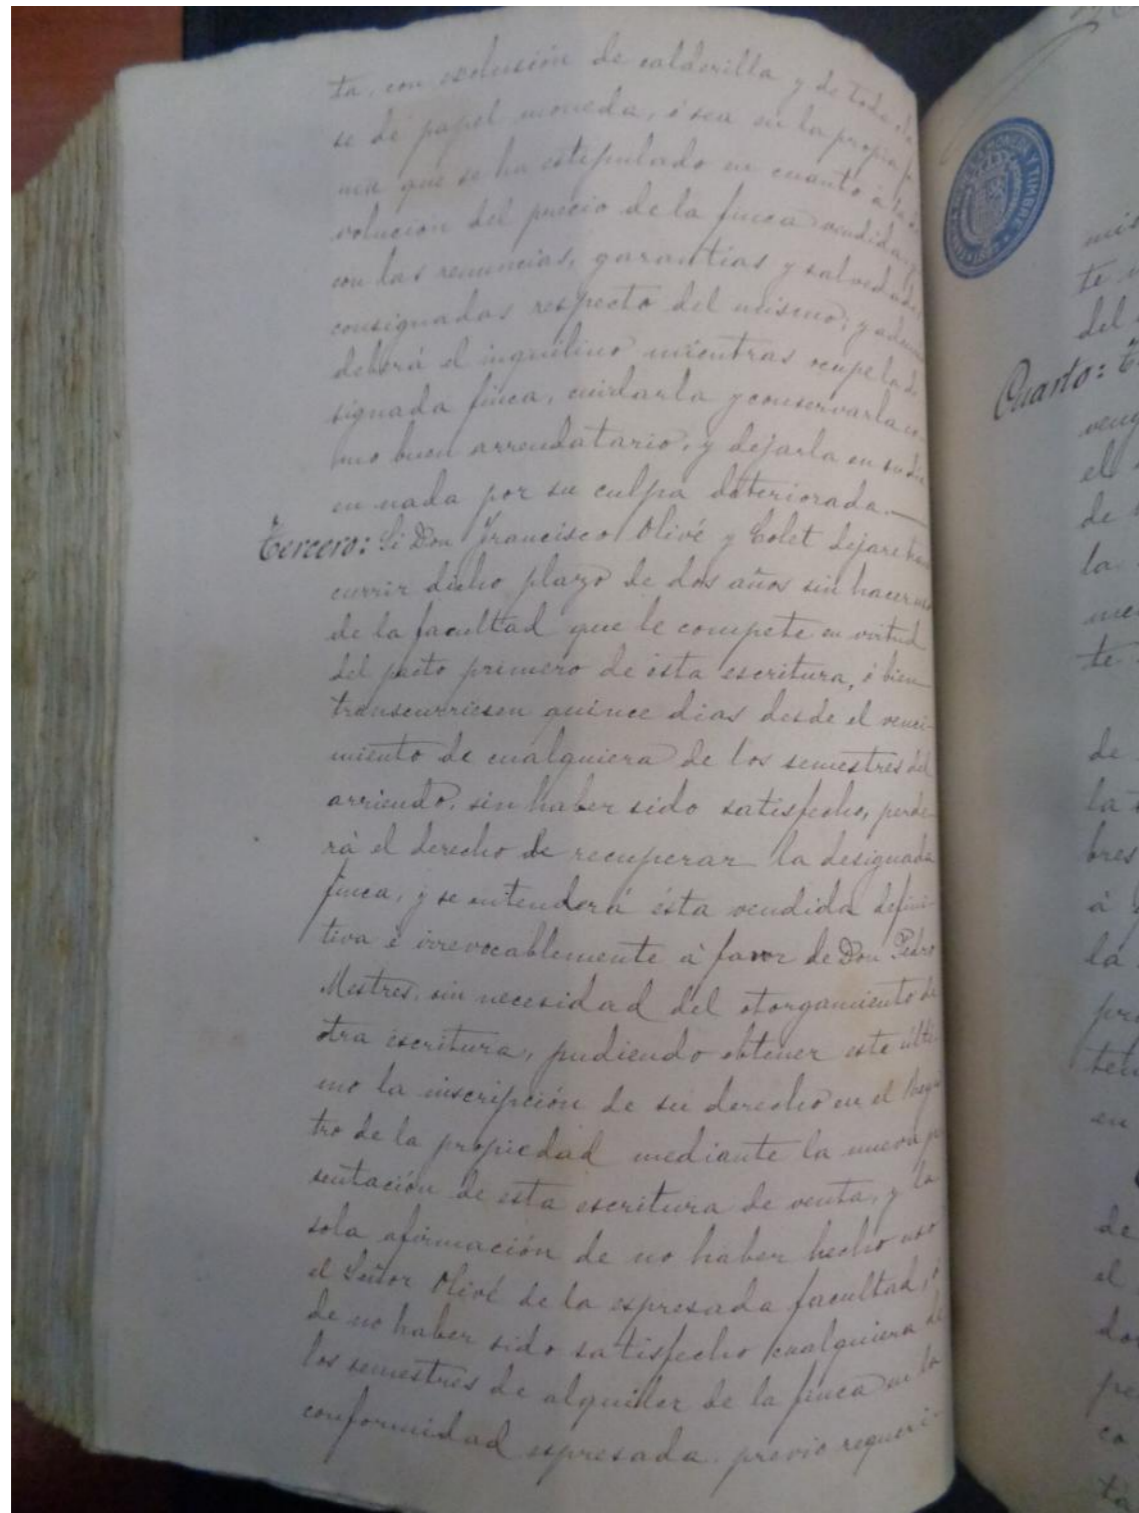 ta, con esclusión de calderilla y de toda cla
se de papel moneda, ó sea en la propia for
ma que se ha estipulado en cuanto á la de
volución del precio de la finca vendida, y
con las renuncias, garantias y salvedades
consignadas respecto del mismo; y además
deberá el inquilino mientras ocupe la de
signada finca, cuidarla y conservarla co
mo buen arrendatario, y dejarla en su dia
en nada por su culpa deteriorada.—
Tercero: Si Don Francisco Olivé y Colet dejare trans
currir dicho plazo de dos años sin hacer uso
de la facultad que le compete en virtud
del pacto primero de ésta escritura, ó bien
transcurriesen quince dias desde el venci-
miento de cualquiera de los semestres del
arriendo, sin haber sido satisfecho, perde-
rá el derecho de recuperar la designada
finca, y se entenderá ésta vendida defini-
tiva é irrevocablemente á favor de Don Pedro
Mestres, sin necesidad del otorgamiento de
otra escritura, pudiendo obtener este últi-
mo la inscripción de su derecho en el Regis
tro de la propiedad mediante la nueva pre
sentación de esta escritura de venta, y la
sola afirmación de no haber hecho uso
el Señor Olivé de la espresada facultad, ó
de no haber sido satisfecho cualquiera de
los semestres de alquiler de la finca en la
conformidad espresada, previo requeri-
Y TIMBRE
mis
te
del
Cuarto:
el
de
la
te
de
la
bres
á
la
pre
en
de
el